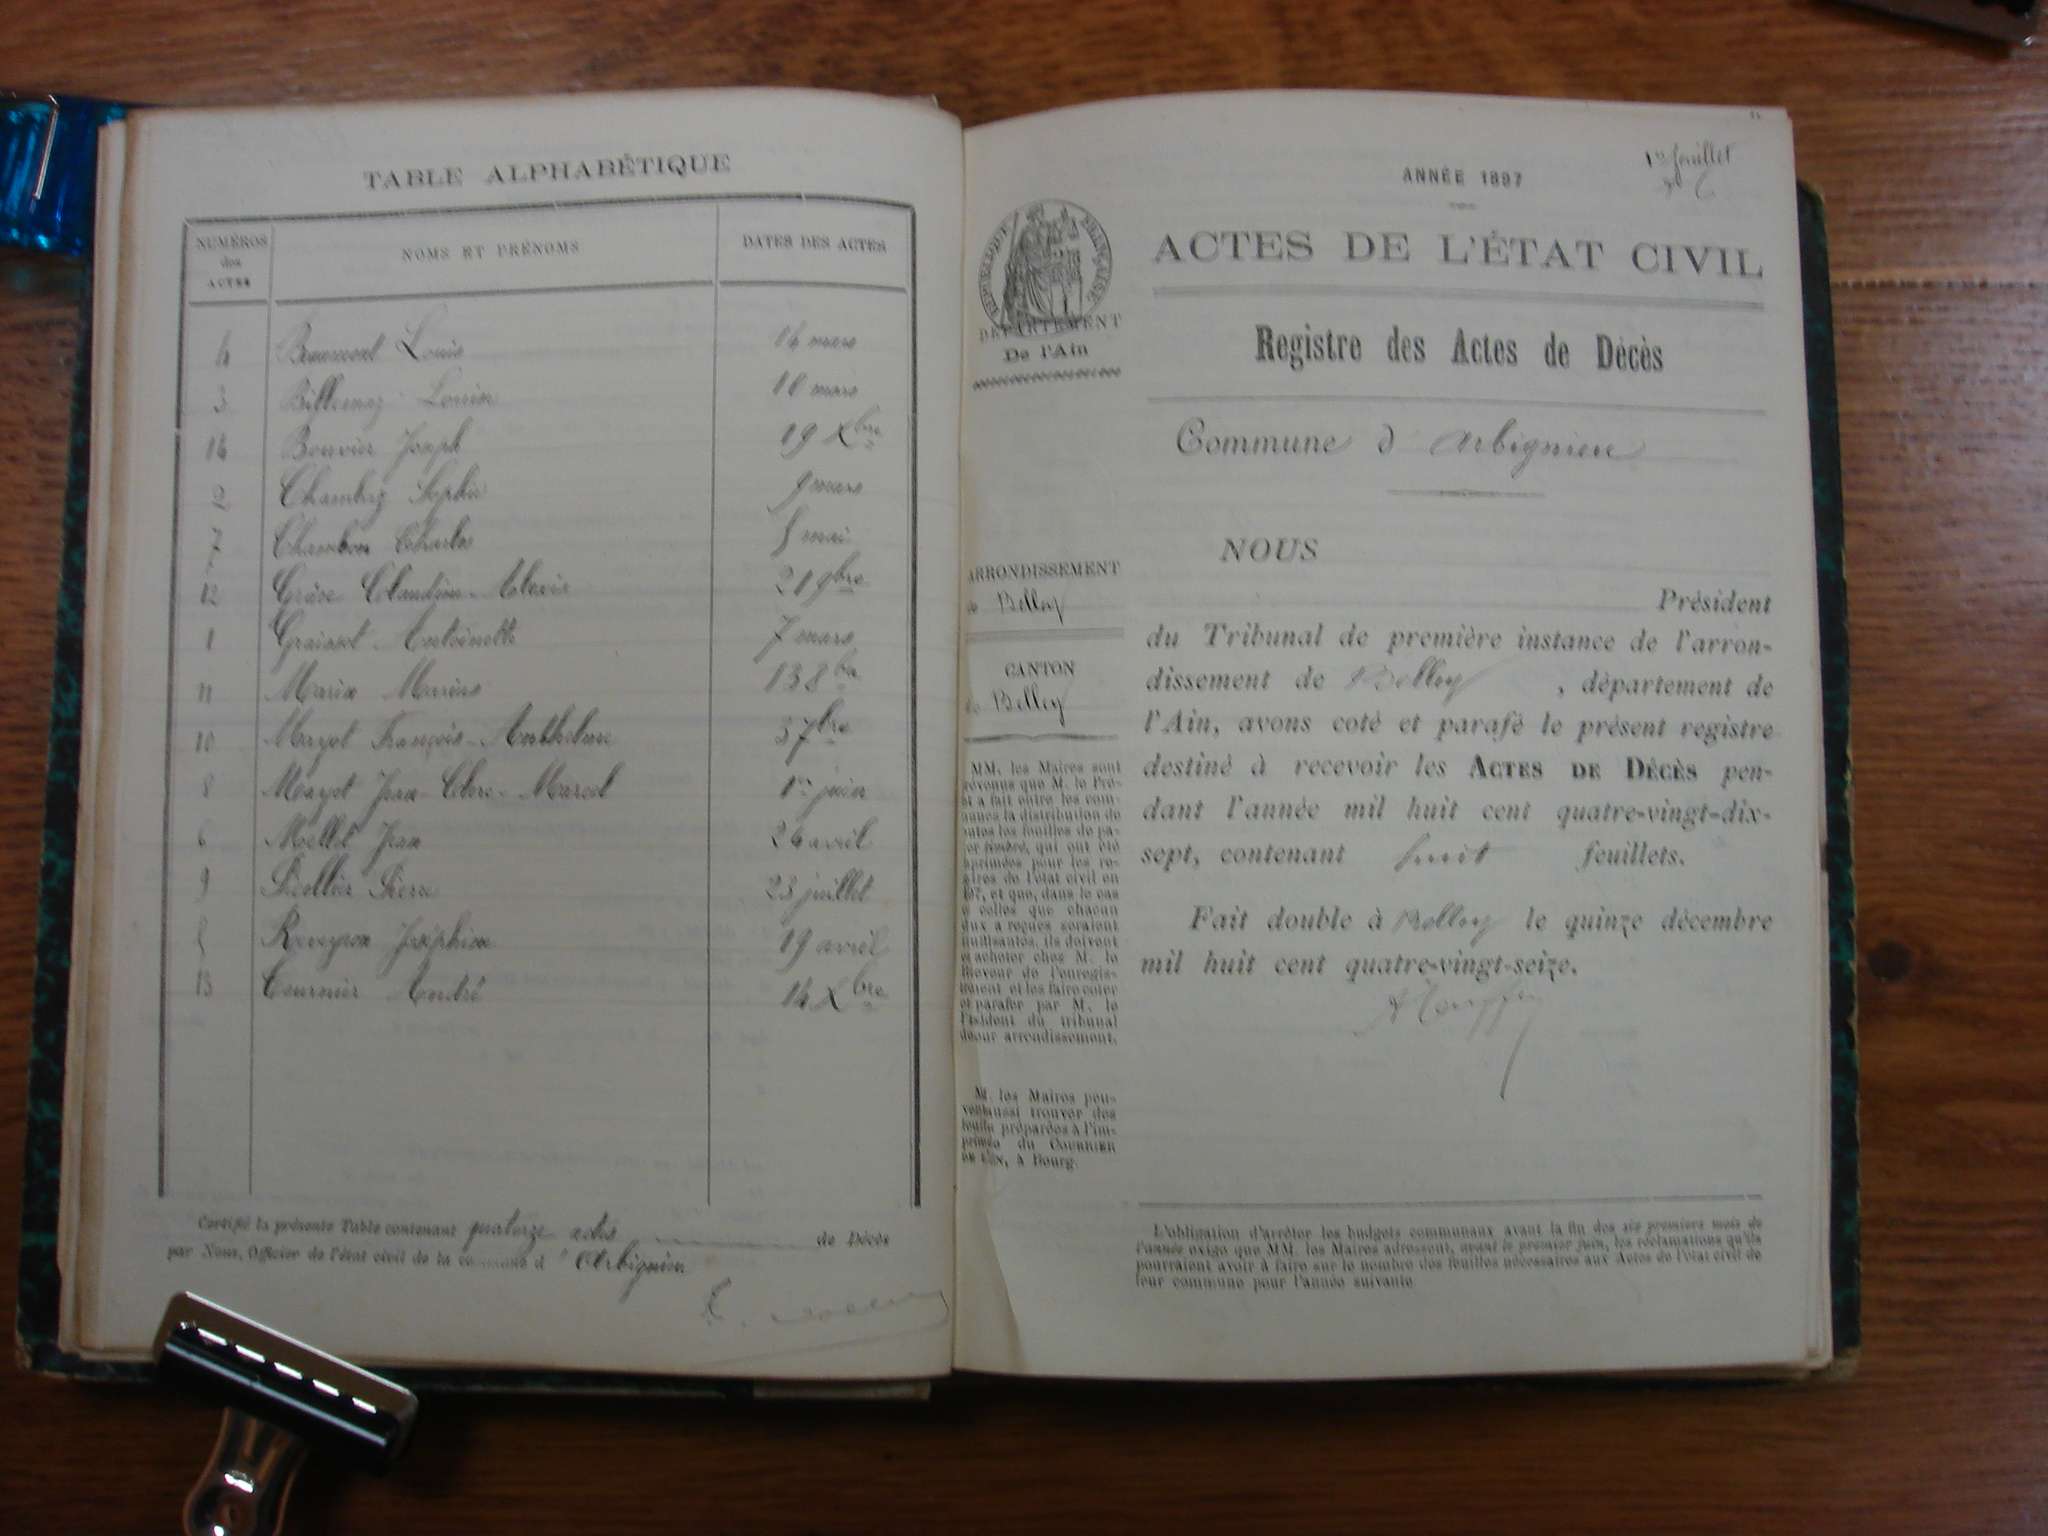 TABLE ALPHABÉTIQUE
NUMÉROS des ACTES
NOMS ET PRÉNOMS
DATES DES ACTES
4 Louis 14 mars
3 18 mars
14 Bouvier Joseph 19 Xbre
2 Sophie 9 mars
7 Chambon Charles 5 mai
12 Claudine 2 9bre
1 Antoinette 7 mars
11 13 8bre
10 Mayot François 3 7bre
8 Mayot Jean Marcel 1er juin
6 Mollet Jean 24 avril
9 Pierre 23 juillet
5 Joséphine 19 avril
13 Tournier André 14 Xbre
Certifié la présente Table contenant quatorze actes de Décès
par Nous, Officier de l'état civil de la commune d'Arbignieu
1er feuillet
ANNÉE 1897
RÉPUBLIQUE FRANÇAISE
DÉPARTEMENT
De l'Ain
ACTES DE L'ÉTAT CIVIL
Registre des Actes de Décès
Commune d'Arbignieu
ARRONDISSEMENT
de Belley
CANTON
de Belley
MM. les Maires sont
prévenus que M. le Pré-
fet a fait entre les com-
munes la distribution de
toutes les feuilles de pa-
pier timbré, qui ont été
imprimées pour les re-
gistres de l'état civil en
1897, et que, dans le cas
où celles que chacun
d'eux a reçues seraient
insuffisantes, ils doivent
en acheter chez M. le
Receveur de l'enregis-
trement et les faire coter
et parafer par M. le
Président du tribunal
de leur arrondissement.
MM. les Maires peu-
vent aussi trouver des
feuilles préparées à l'im-
primerie du COURRIER
DE L'AIN, à Bourg.
NOUS
Président
du Tribunal de première instance de l'arron-
dissement de Belley, département de
l'Ain, avons coté et parafé le présent registre
destiné à recevoir les ACTES DE DÉCÈS pen-
dant l'année mil huit cent quatre-vingt-dix-
sept, contenant huit feuillets.
Fait double à Belley le quinze décembre
mil huit cent quatre-vingt-seize.
L'obligation d'arrêter les budgets communaux avant la fin des six premiers mois de
l'année exige que MM. les Maires adressent, avant le premier juin, les réclamations qu'ils
pourraient avoir à faire sur le nombre des feuilles nécessaires aux Actes de l'état civil de
leur commune pour l'année suivante